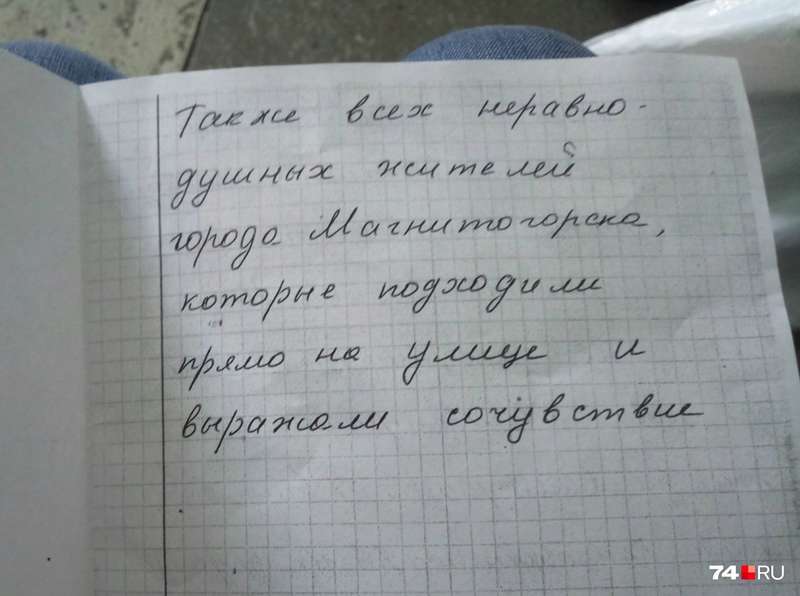 Также всех неравно-
душных жителей
города Магнитогорска,
которые подходили
прямо на улице и
выражали сочувствие
74.RU